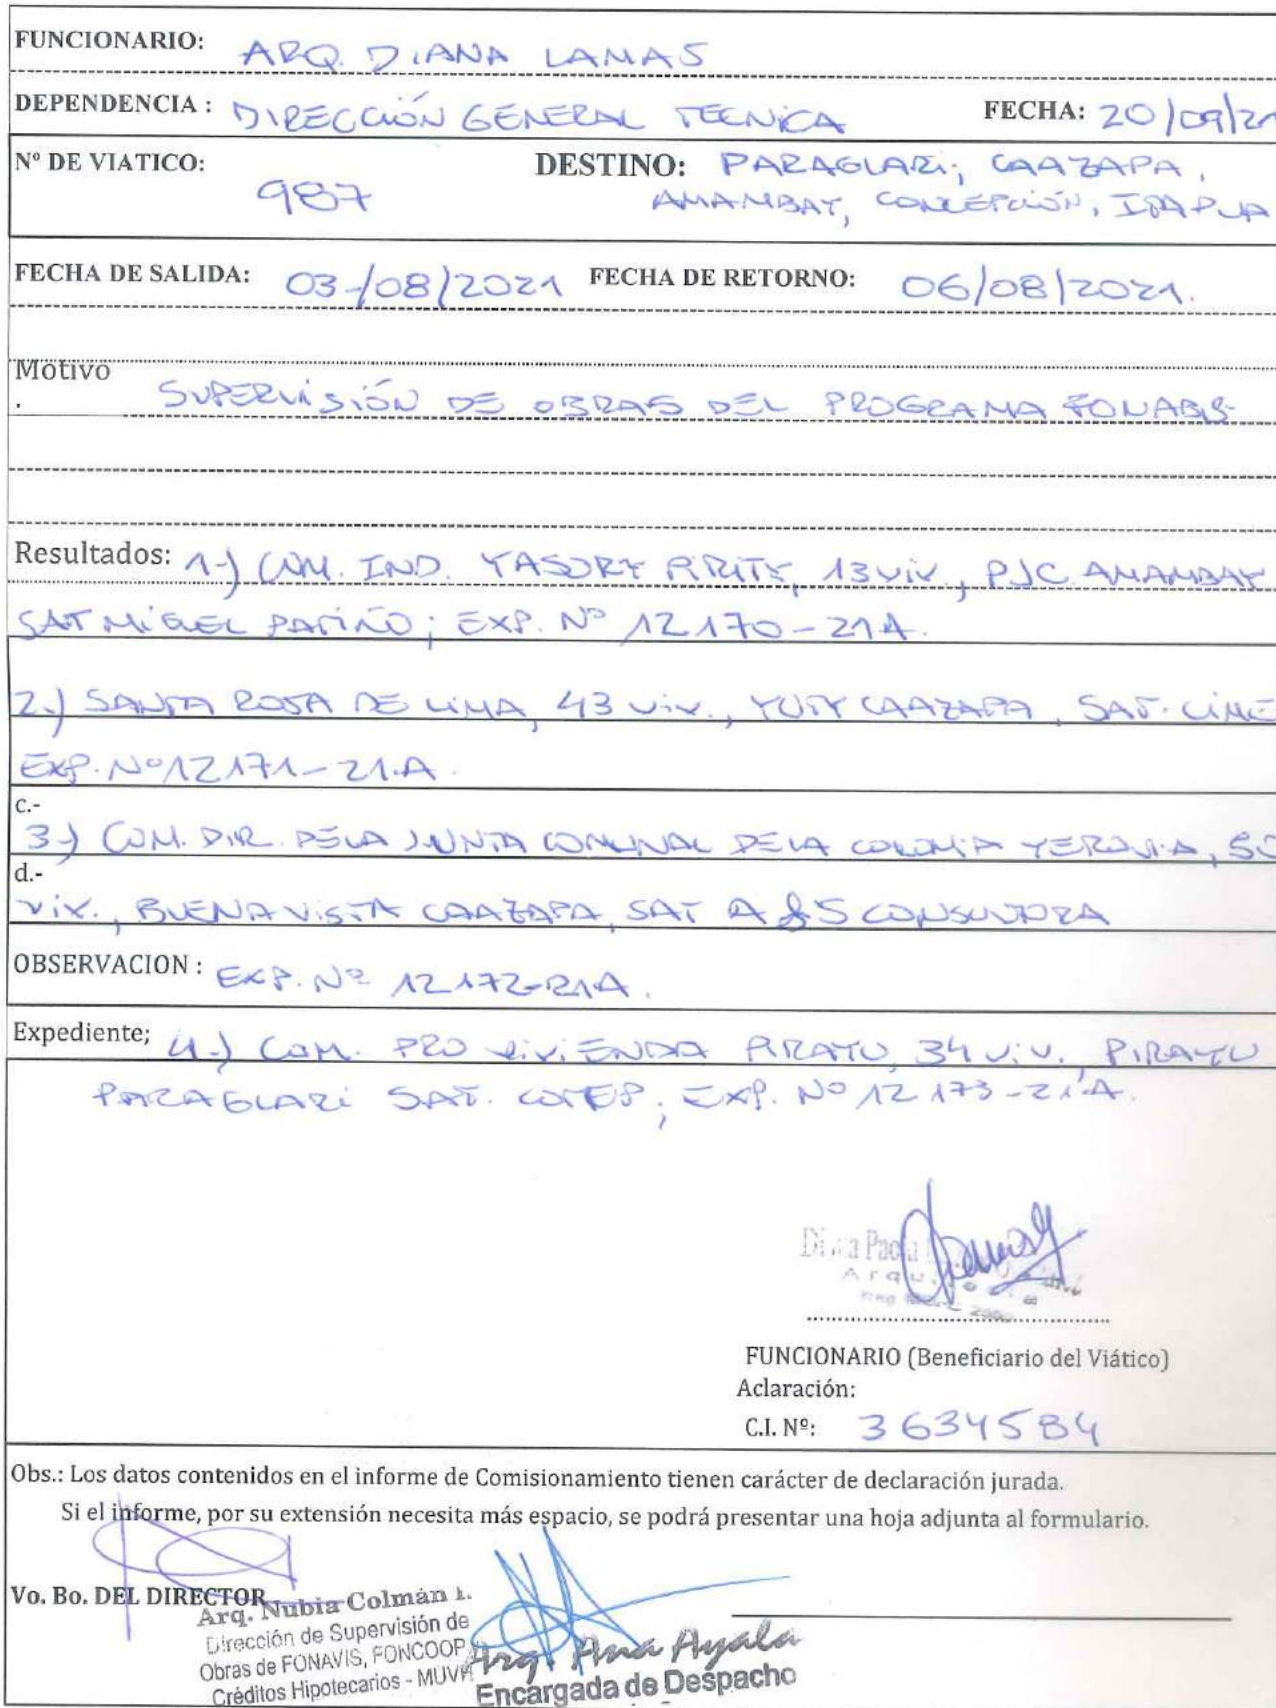 FUNCIONARIO: ARQ. DIANA LAMAS
DEPENDENCIA : DIRECCIÓN GENERAL TECNICA FECHA: 20/09/21
Nº DE VIATICO: 987 DESTINO: PARAGUARI; CAAZAPA,
AMAMBAY, CONCEPCIÓN, ITAPUA
FECHA DE SALIDA: 03/08/2021 FECHA DE RETORNO: 06/08/2021.
Motivo
. SUPERVISIÓN DE OBRAS DEL PROGRAMA FONAVIS
Resultados: 1-) COM. IND. YASORY PIRITY, 13 viv., PJC AMAMBAY
SAT MIGUEL PATIÑO; EXP. Nº 12170-21A.
2.) SANTA ROSA DE LIMA, 43 viv., YUTY CAAZAPA, SAT. CIME
EXP. Nº 12171-21.A
c.-
3-) COM. DIR. DE LA JUNTA COMUNAL DE LA COLONIA YEROVIA,
d.-
viv., BUENA VISTA CAAZAPA, SAT A&S CONSULTORA
OBSERVACION : EXP. Nº 12172-21A.
Expediente; 4-) COM. PRO VIVIENDA PIRAYU, 34 viv., PIRAYU
PARAGUARI SAT. COTEP; EXP. Nº 12173-21A.
Diana Paola
Arquitecta
FUNCIONARIO (Beneficiario del Viático)
Aclaración:
C.I. Nº: 3634584
Obs.: Los datos contenidos en el informe de Comisionamiento tienen carácter de declaración jurada.
Si el informe, por su extensión necesita más espacio, se podrá presentar una hoja adjunta al formulario.
Vo. Bo. DEL DIRECTOR
Arq. Nubia Colmán
Dirección de Supervisión de
Obras de FONAVIS, FONCOOP
Créditos Hipotecarios - MUVH
Arq. Ana Ayala
Encargada de Despacho